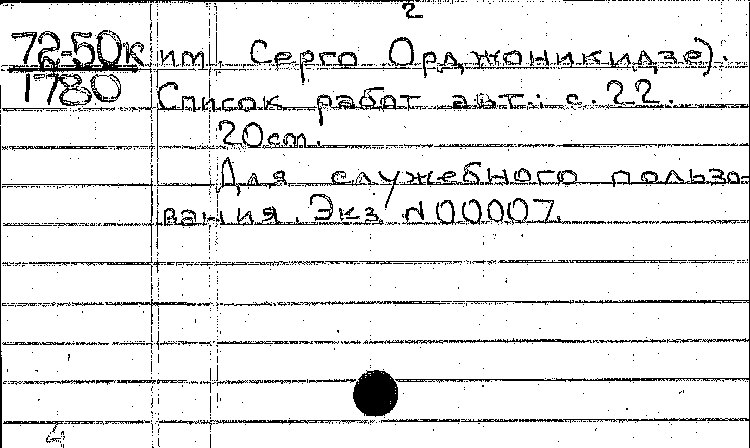 2
72-50к им. Серго Орджоникидзе).
1780 Список работ авт.: с. 22.
20 cm.
Для служебного пользо-
вания. Экз N00007.